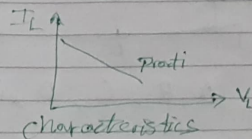 IL
practi
VL
Characteristics